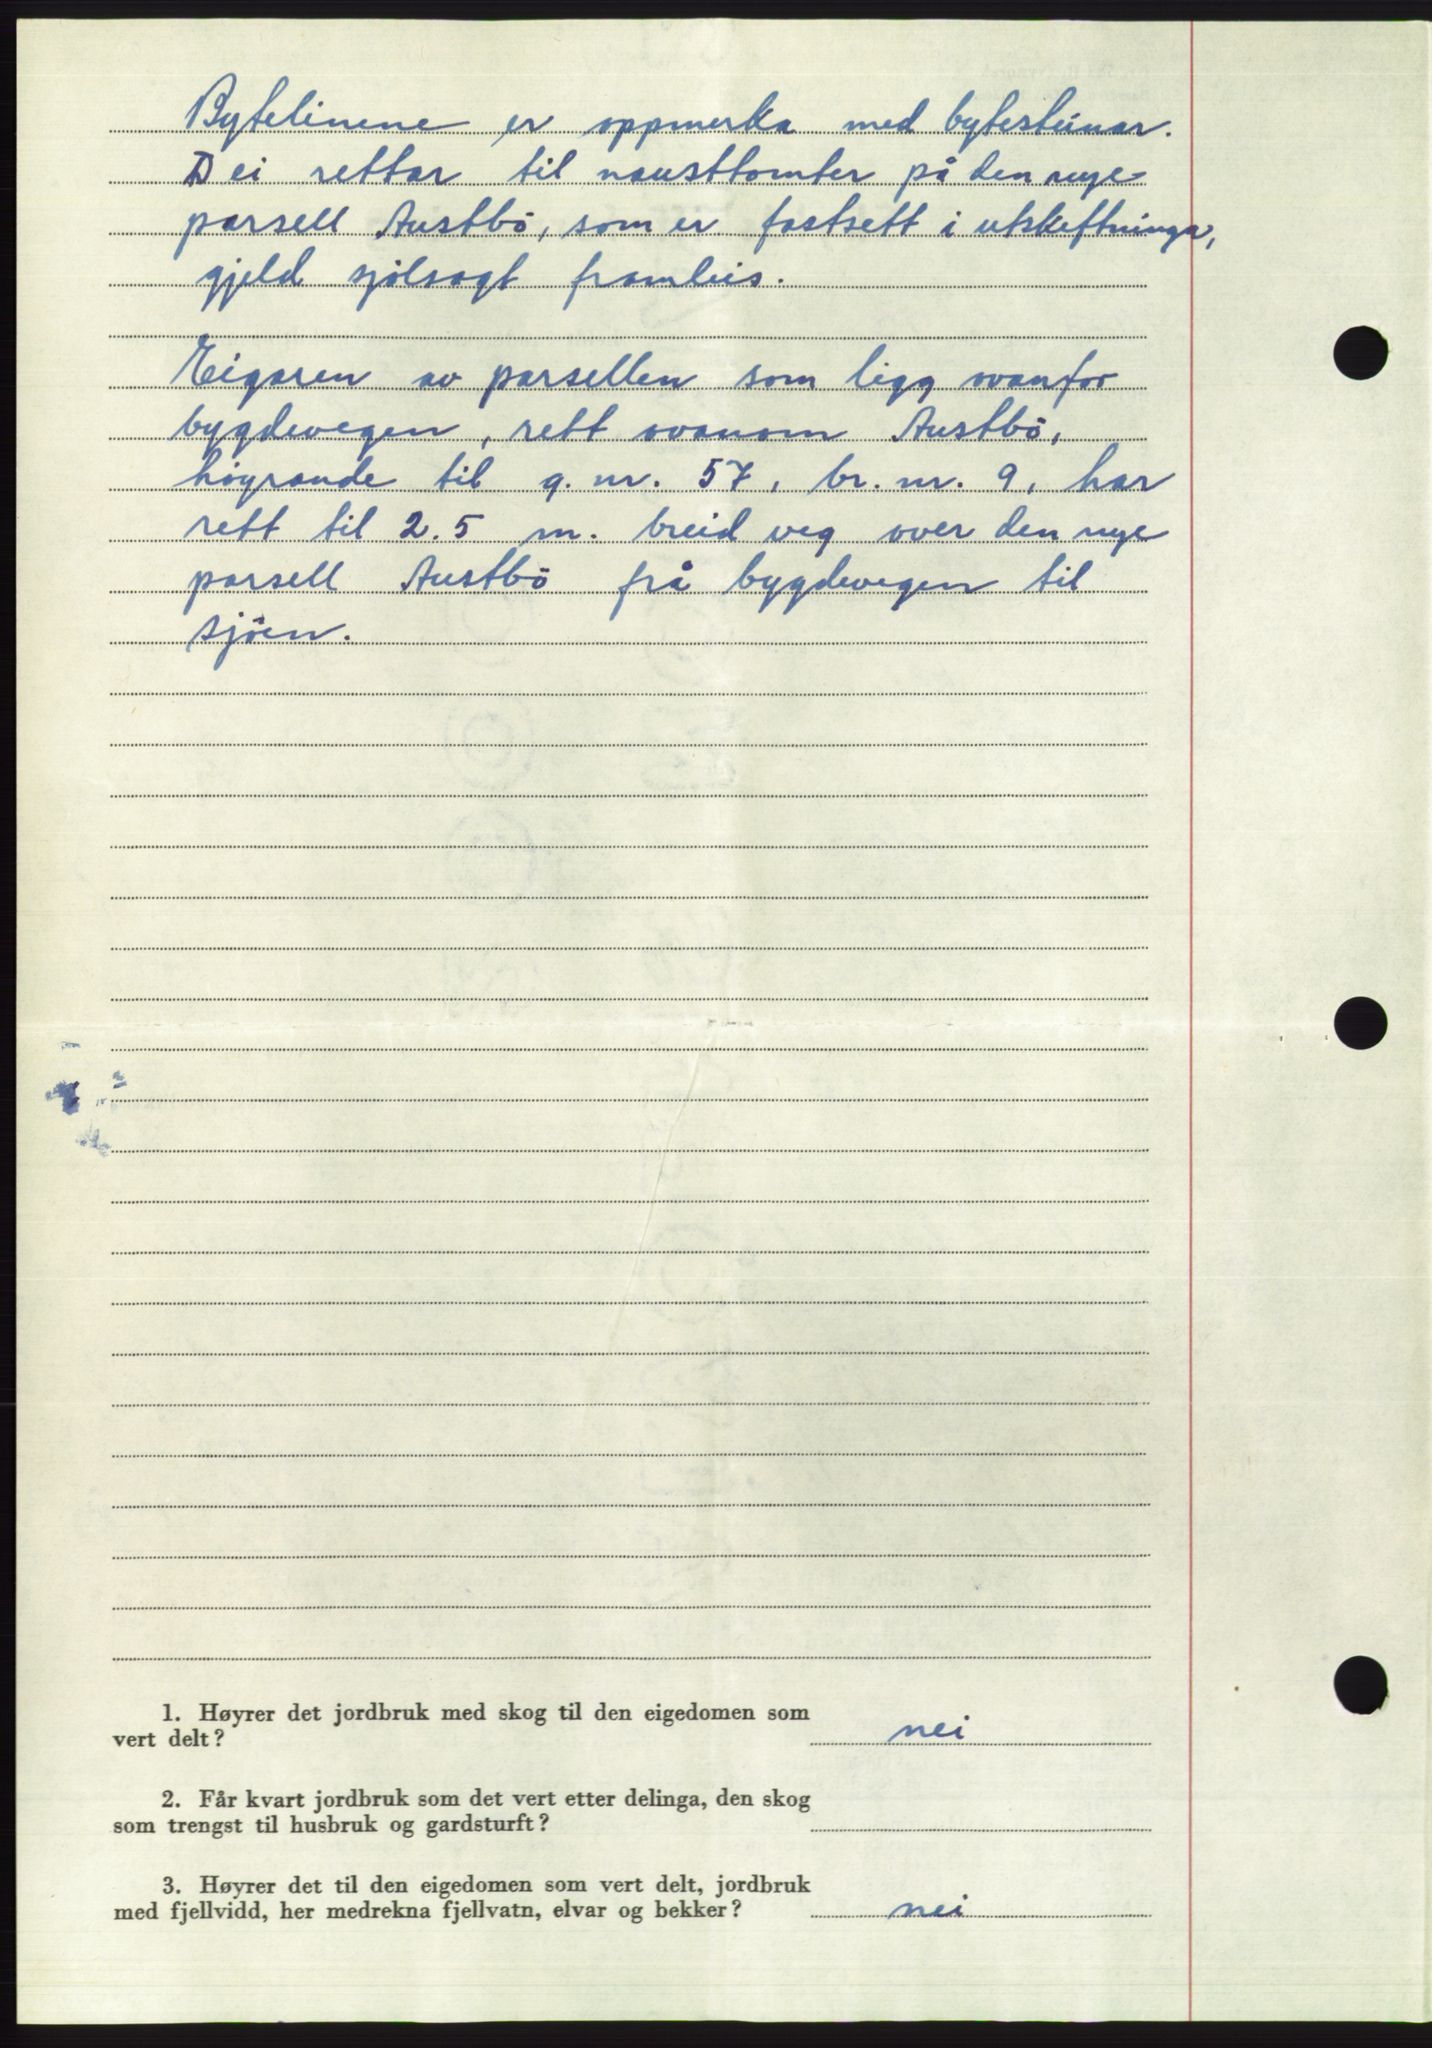 Bytelinene er oppmerka med bytesteinar.
Dei rettar til nausttomter på den nye
parsell Austbö, som er fastsett i utskiftninga,
gjeld sjölsagt framleis.
Eigaren av parsellen som ligg ovanfor
bygdevegen, rett ovanom Austbö,
höyrande til g. nr. 57, br. nr. 9, har
rett til 2.5 m. breid veg over den nye
parsell Austbö frå bygdevegen til
sjöen.
1. Høyrer det jordbruk med skog til den eigedomen som
vert delt? nei
2. Får kvart jordbruk som det vert etter delinga, den skog
som trengst til husbruk og gardsturft?
3. Høyrer det til den eigedomen som vert delt, jordbruk
med fjellvidd, her medrekna fjellvatn, elvar og bekker? nei